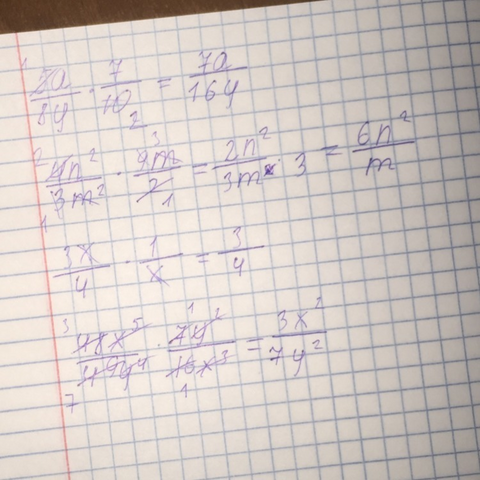 5a/8y · 7/10 = 7a/16y
4n²/3m² · 9m/2 = 2n²/3m · 3 = 6n²/m
3x/4 · 1/x = 3/4
48x⁵/49y⁴ · 7y²/16x³ = 3x²/7y²